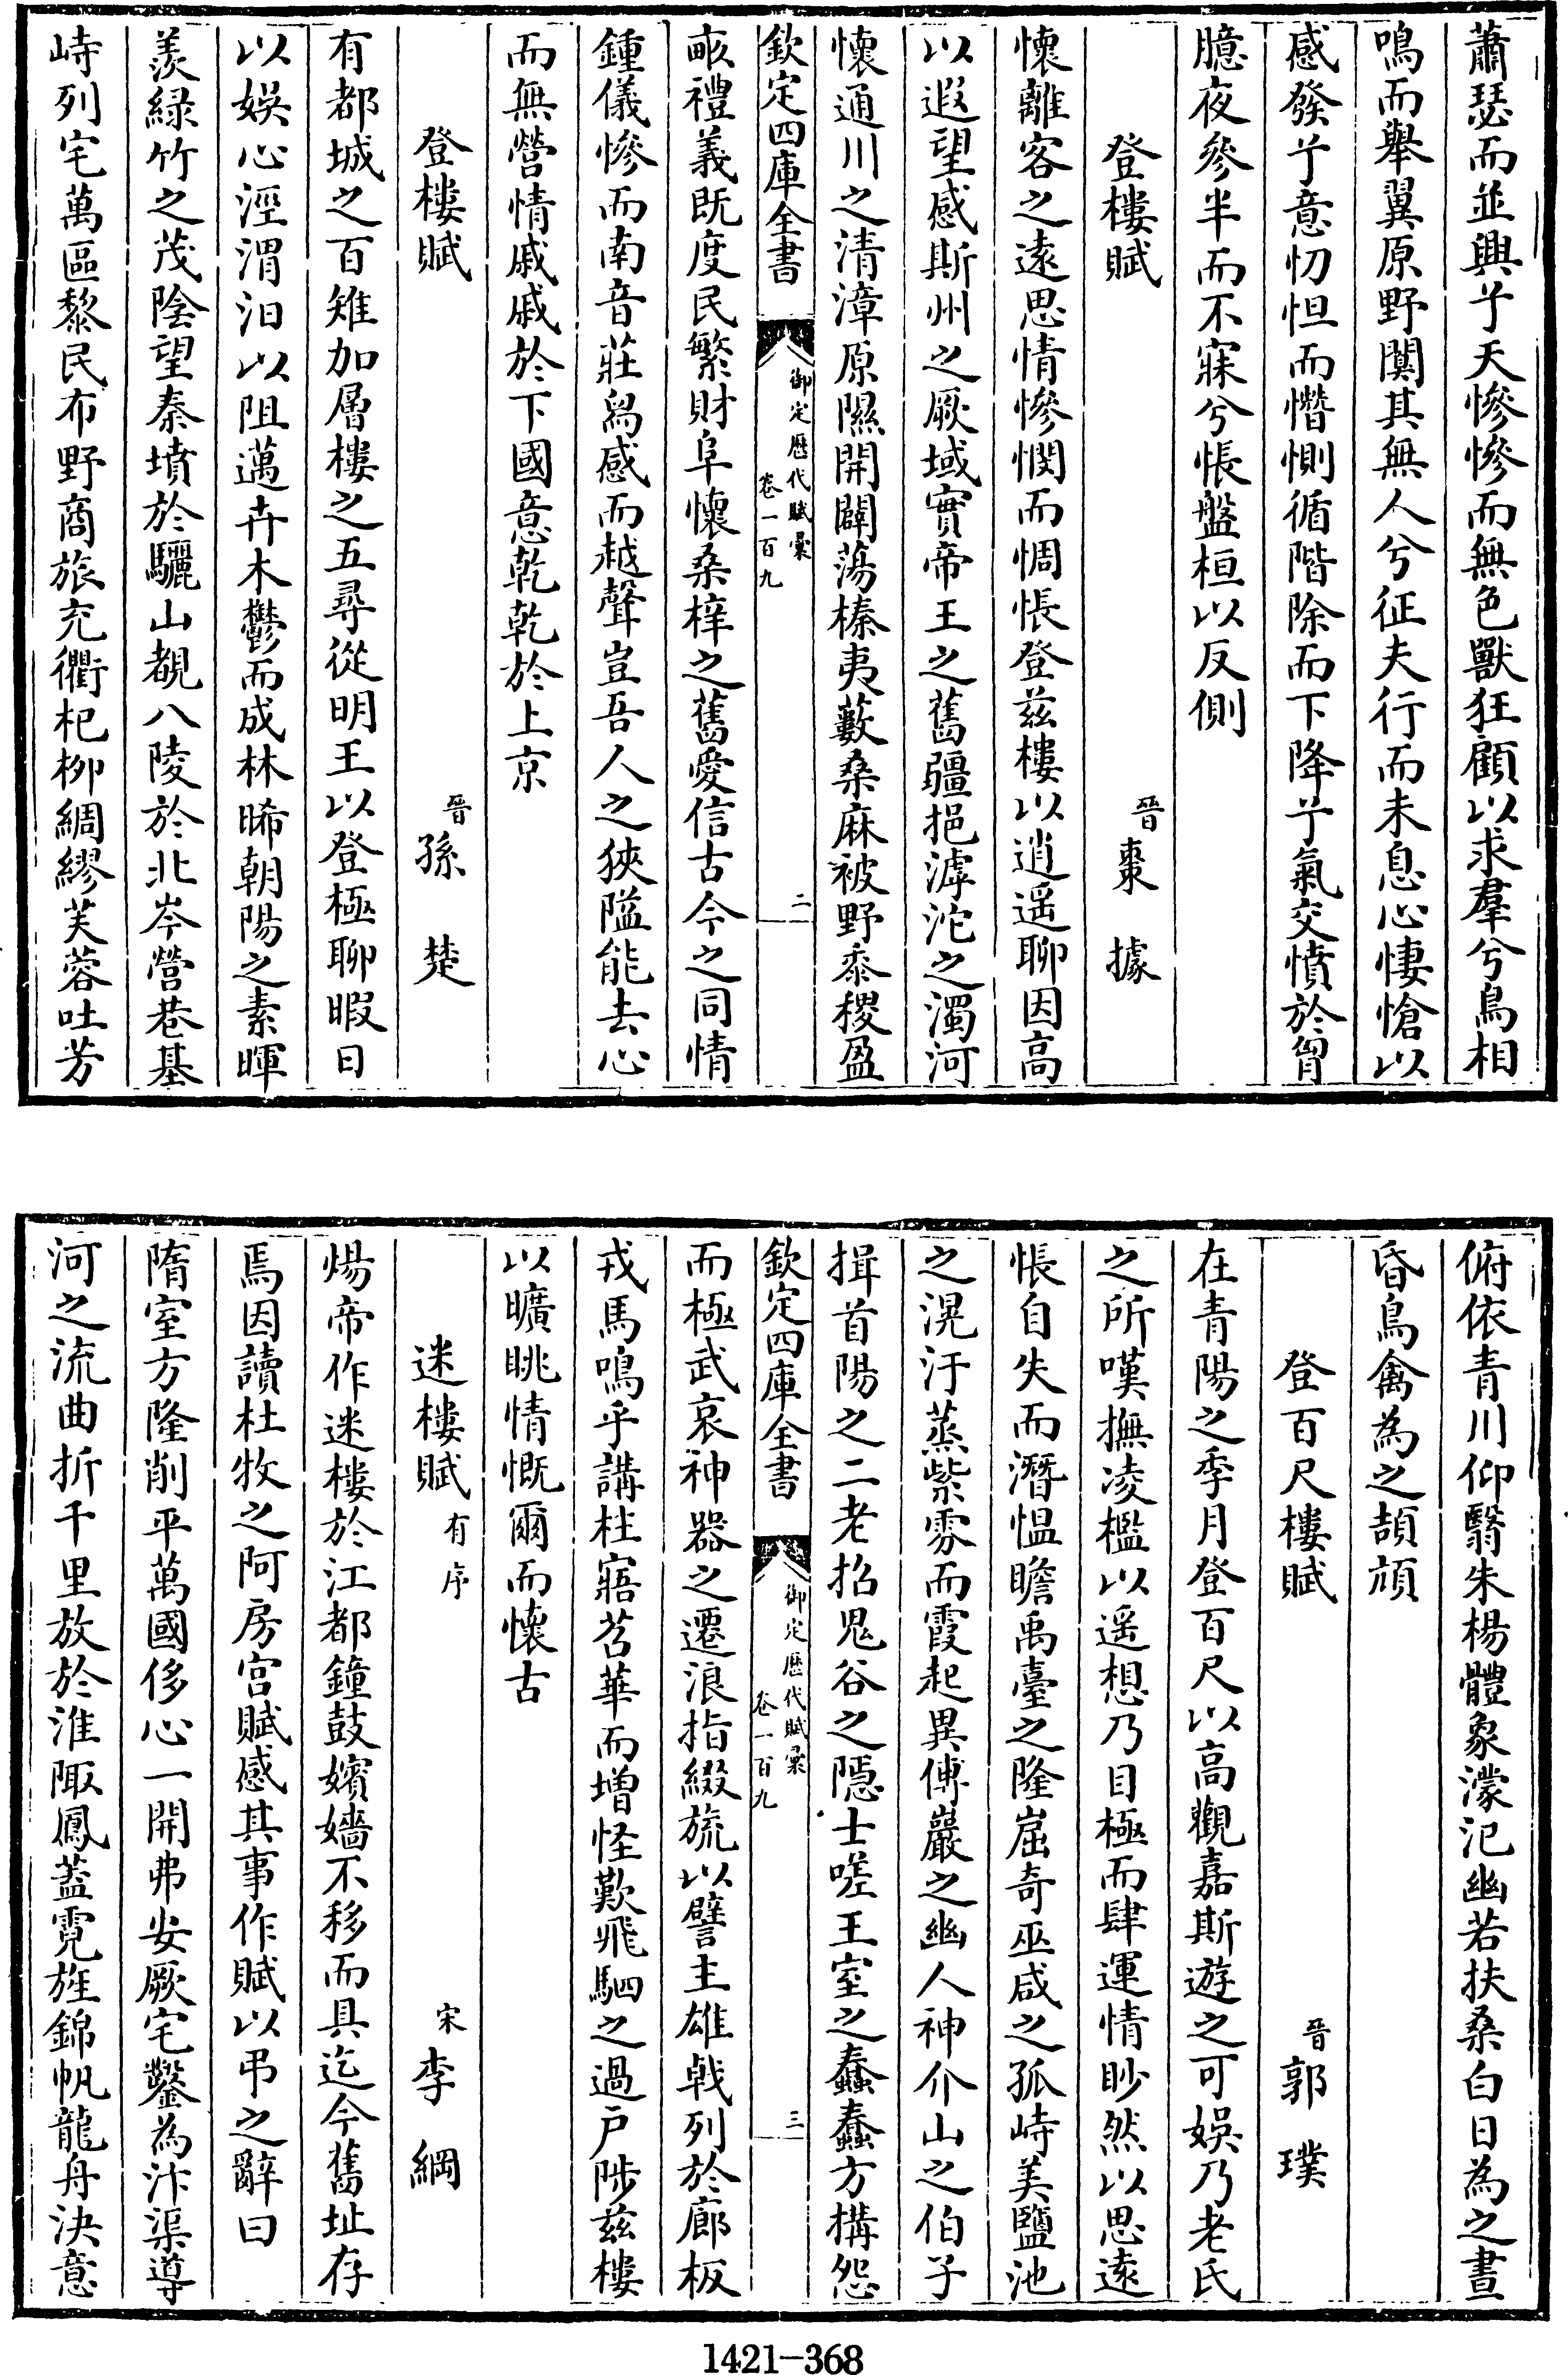 蕭瑟而並興兮天慘慘而無色獸狂顧以求羣兮鳥相
鳴而舉翼原野闃其無人兮征夫行而未息心悽愴以
感發兮意忉怛而憯惻循階除而下降兮氣交憤於胷
臆夜參半而不寐兮悵盤桓以反側
登樓賦　晉棗據
懷離客之遠思情慘憫而惆悵登兹樓以逍遥聊因高
以遐望感斯州之厥域實帝王之舊疆挹滹沱之濁河
懷通川之清漳原隰開闢蕩榛夷藪桑麻被野黍稷盈
欽定四庫全書　御定歷代賦彙　卷一百九　二
畝禮義既度民繁財阜懷桑梓之舊愛信古今之同情
鍾儀慘而南音莊舄感而越聲豈吾人之狹隘能去心
而無營情戚戚於下國意乾乾於上京
登樓賦　晉孫楚
有都城之百雉加層樓之五尋從明王以登極聊暇日
以娛心涇渭汩以阻邁卉木鬱而成林晞朝陽之素暉
羨緑竹之茂陰望秦墳於驪山覩八陵於北岑營巷基
峙列宅萬區黎民布野商旅充衢杞栁綢繆芙蓉吐芳
俯依青川仰翳朱楊體象濛汜幽若扶桑白日為之晝
昏鳥禽為之頡頏
登百尺樓賦　晉郭璞
在青陽之季月登百尺以高觀嘉斯遊之可娛乃老氏
之所嘆撫凌檻以遥想乃目極而肆運情眇然以思遠
悵自失而潛愠瞻禹臺之隆崫奇巫咸之孤峙美鹽池
之滉汙蒸紫雰而霞起異傅巖之幽人神介山之伯子
揖首陽之二老招鬼谷之隱士嗟王室之蠢蠢方構怨
欽定四庫全書　御定歷代賦彙　卷一百九　三
而極武哀神器之遷浪指綴旒以譬主雄㦸列於廊板
戎馬鳴乎講柱寤苕華而增怪歎飛駟之過户陟兹樓
以曠眺情慨爾而懷古
迷樓賦有序　宋李綱
煬帝作迷樓於江都鐘鼓嬪嬙不移而具迄今舊址存
焉因讀杜牧之阿房宫賦感其事作賦以弔之辭曰
隋室方隆削平萬國侈心一開弗安厥宅鑿為汴渠導
河之流曲折千里放於淮陬鳳蓋霓旌錦帆龍舟決意
1421-368